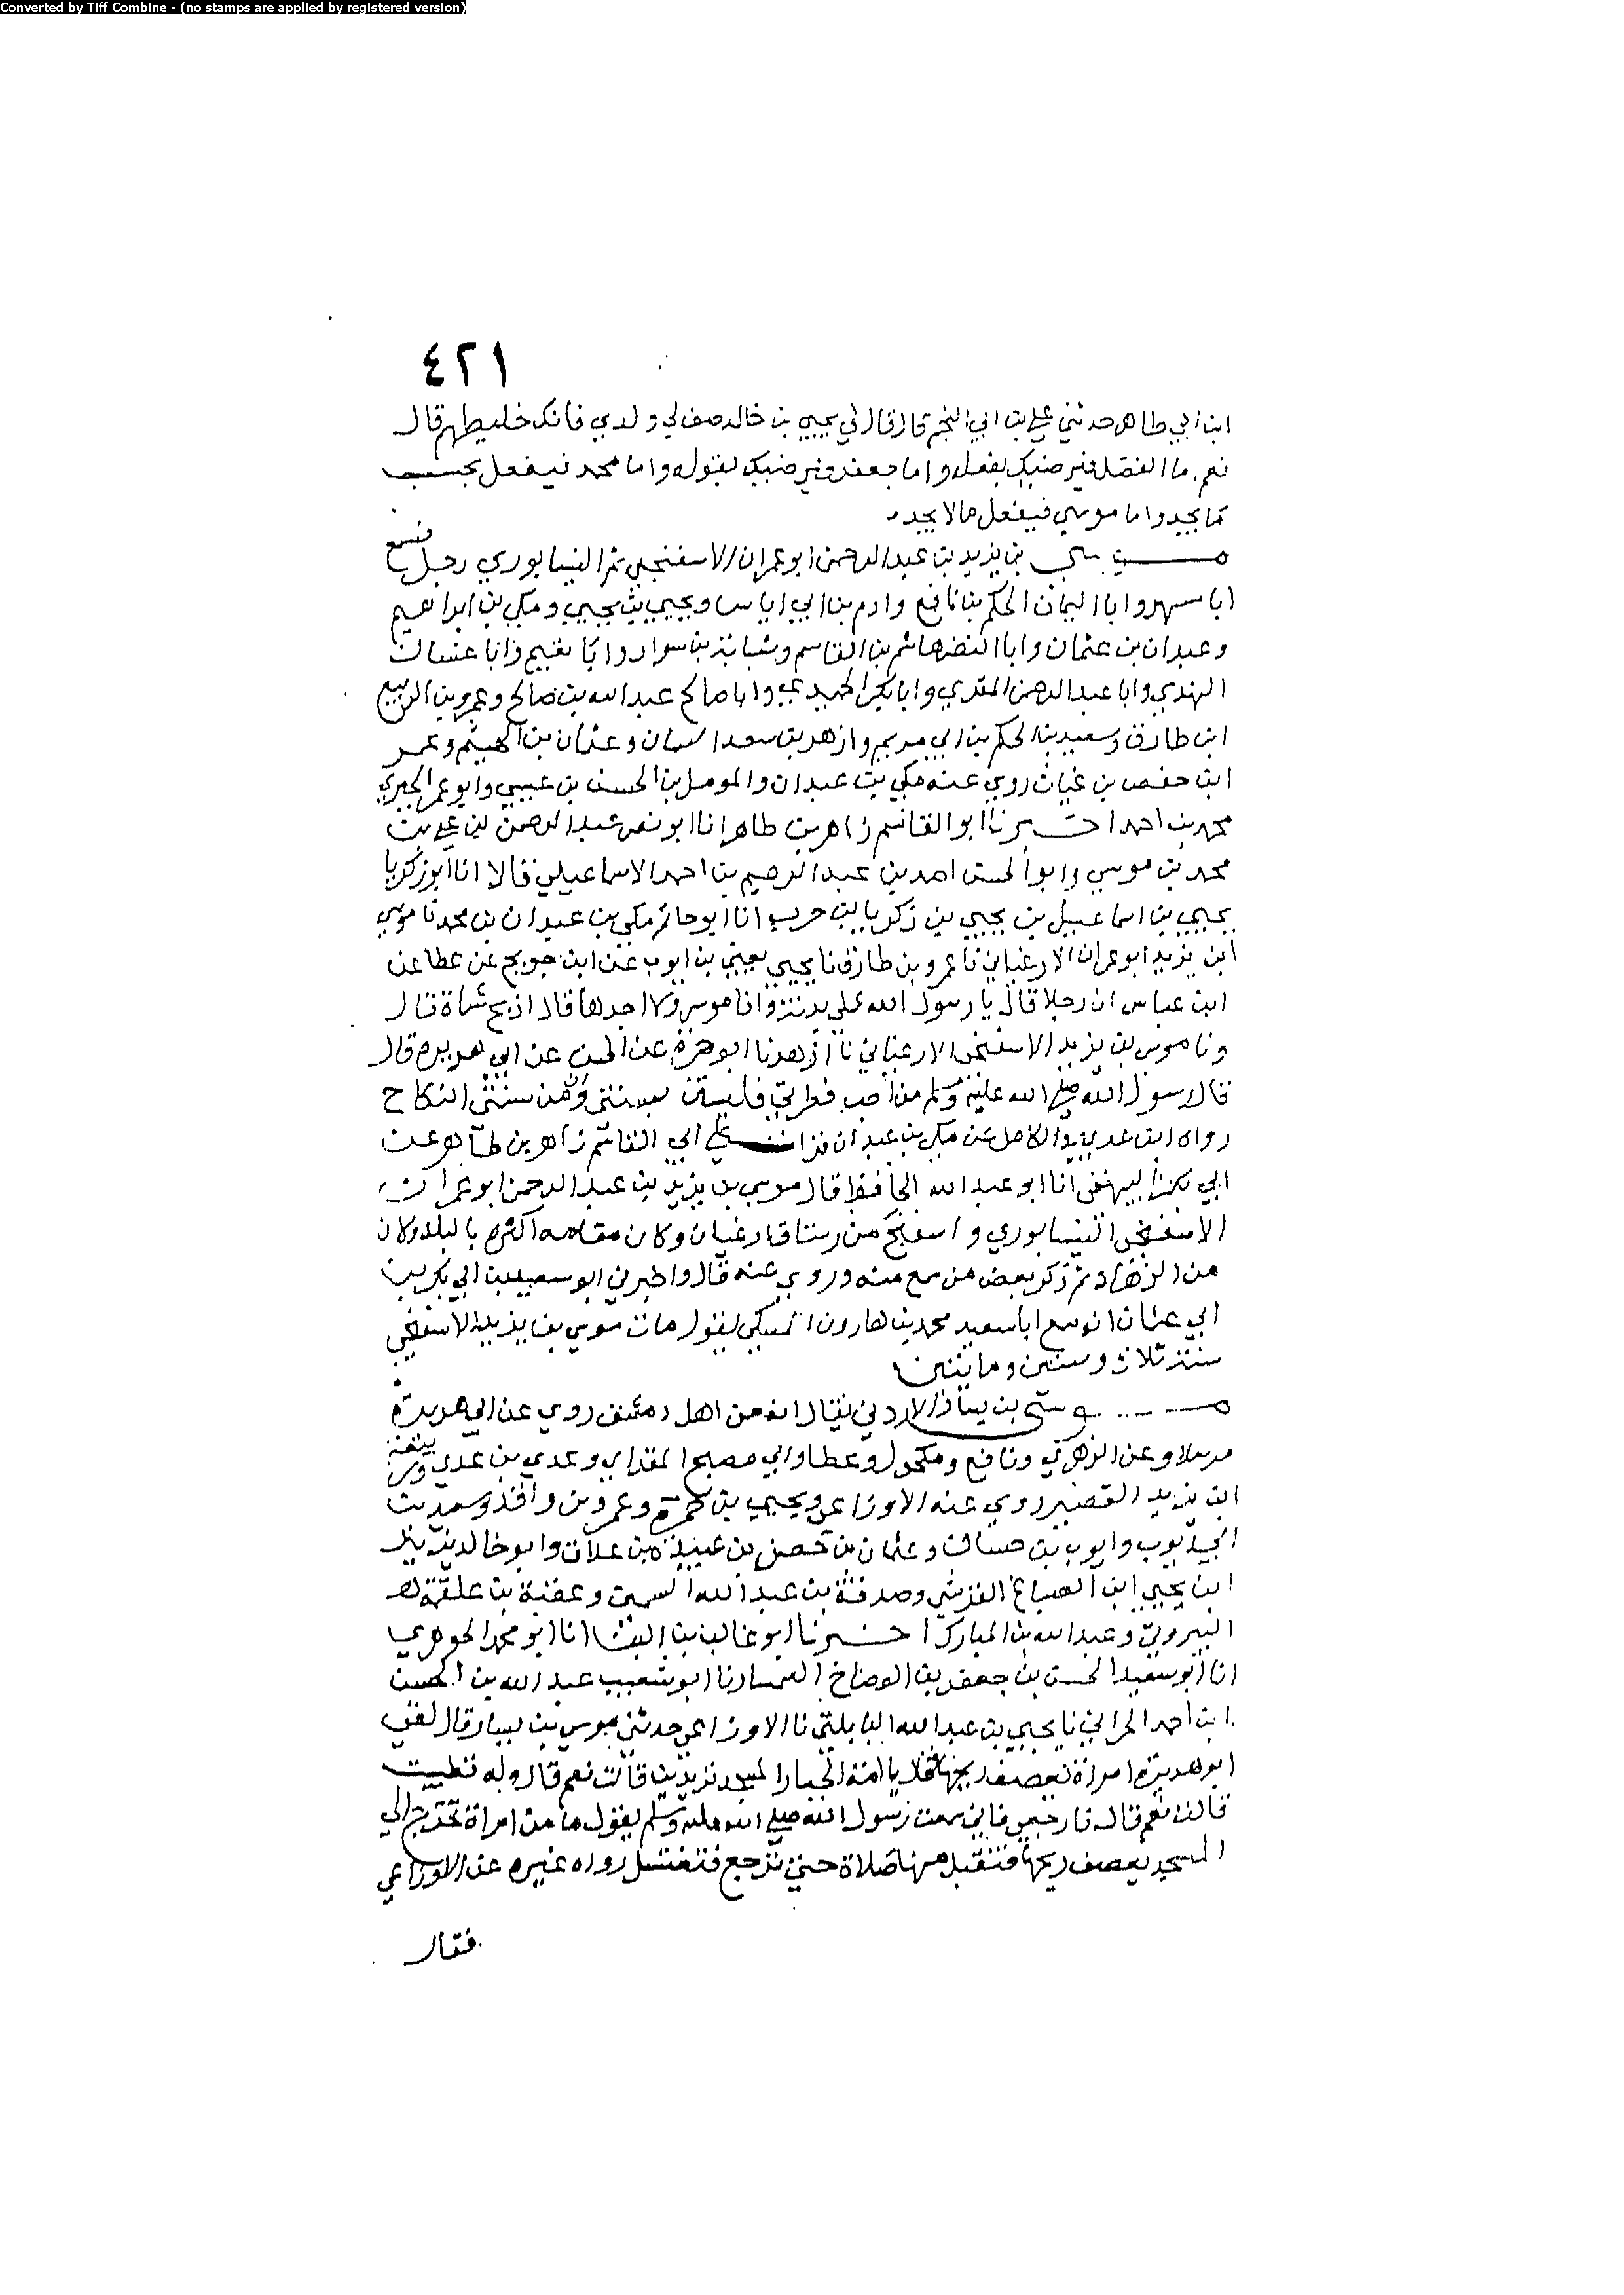 Converted by Tiff Combine - (no stamps are applied by registered version)
٤٢١
ابن ابي طاهر حدثني علي بن ابي النجم قال قال لي يحيي بن خالد صف لي ولدي فانك خليطهم قال
نعم اما الفضل فيرضيك بفعله واما جعفر فيرضيك بقوله واما محمد فيفعل بحسب
ما يجد واما موسي فيفعل ما لا يجد
موسي بن يزيد بن عبد الرحمن ابو عمران الاسفنجي ثم النيسابوري رجل فسمع
ابا مسهر وابا اليمان الحكم بن نافع وادم بن ابي اياس ويحيي بن يحيي ومكي بن ابراهيم
وعبدان بن عثمان وابا النضر هاشم بن القاسم وشبابة بن سوار وابا نعيم وابا غسان
النهدي وابا عبد الرحمن المقري وابا بكر الحميدي وابا صالح عبد الله بن صالح وعمرو بن الربيع
ابن طارق وسعيد بن الحكم بن ابي مريم وازهر بن سعد السمان وعثمان بن الهيثم وعمر
ابن حفص بن غياث روي عنه مكي بن عبدان والمومل بن الحسن بن عيسي وابو عمر الحيري
محمد بن احمد اخبرنا ابو القاسم زاهر بن طاهر انا ابو نصر عبد الرحمن بن علي بن
محمد بن موسي وابو الحسن احمد بن عبد الرحيم بن احمد الاسماعيلي قالا انا ابو زكريا
يحيي بن اسماعيل بن يحيي بن زكريا بن حرب انا ابو حاتم مكي بن عبدان بن محمد نا موسي
ابن يزيد ابو عمران الارغياني نا عمرو بن طارق نا يحيي يعني بن ايوب عن ابن جريج عن عطا عن
ابن عباس ان رجلا قال يا رسول الله علي بدنة وانا موسر ولا اجدها قال اذبح شاة قال
ونا موسي بن يزيد الاسفنجي الارغياني نا ازهر نا ابو حرة عن الحسن عن ابي هريرة قال
قال رسول الله صلي الله عليه وسلم من احب فطرتي فليستن بسنتي وان من سنتي النكاح
رواه ابن عدي في الكامل عن مكي بن عبدان قرات علي ابي القاسم زاهر بن طاهر عن
ابي بكر البيهقي انا ابو عبد الله الحافظ قال موسي بن يزيد بن عبد الرحمن ابو عمران
الاسفنجي النيسابوري واسفنج من رستاق ارغيان وكان مقامه اكثره بالبلد وكان
من الزهاد ثم ذكر بعض من سمع منه وروي عنه قال واخبرني ابو سعيد بن ابي بكر بن
ابي عثمان انه سمع ابا سعيد محمد بن هارون المسكي يقول مات موسي بن يزيد الاسفنجي
سنة ثلاث وستين وماتين
موسي بن يسار الاردني يقال انه من اهل دمشق روي عن ابي هريرة
مرسلا وعن الزهري ونافع ومكحول وعطا وابي مصبح المقراي وعدي بن عدي وربيعة
ابن يزيد القصير روي عنه الاوزاعي ويحيي بن حمزة وعمرو بن واقد وسعد بن
ايوب بن حسان وعثمان بن حصن بن عبيدة بن علاق وابو خالد يزيد
ابن يحيي ابن الصباغ القرشي وصدقة بن عبد الله السمين وعقبة بن علقمة
البيروتي وعبد الله بن المبارك اخبرنا ابو غالب بن البنا انا ابو محمد الجوهري
انا ابو سعيد الحسن بن جعفر بن الوضاح السمسار نا ابو شعيب عبد الله بن الحسن
ابن احمد الحراني نا يحيي بن عبد الله البابلتي نا الاوزاعي حدثني موسي بن يسار قال لقي
ابو هريرة امراة تعصف ريحها فقال يا امة الجبار المسجد تريدين قالت نعم قال وله تطيبت
قالت نعم قال فارجعي فاني سمعت رسول الله صلي الله عليه وسلم يقول ما من امراة تخرج الي
المسجد يعصف ريحها فتقبل منها صلاة حتي ترجع فتغتسل رواه غيره عن الاوزاعي
فقال